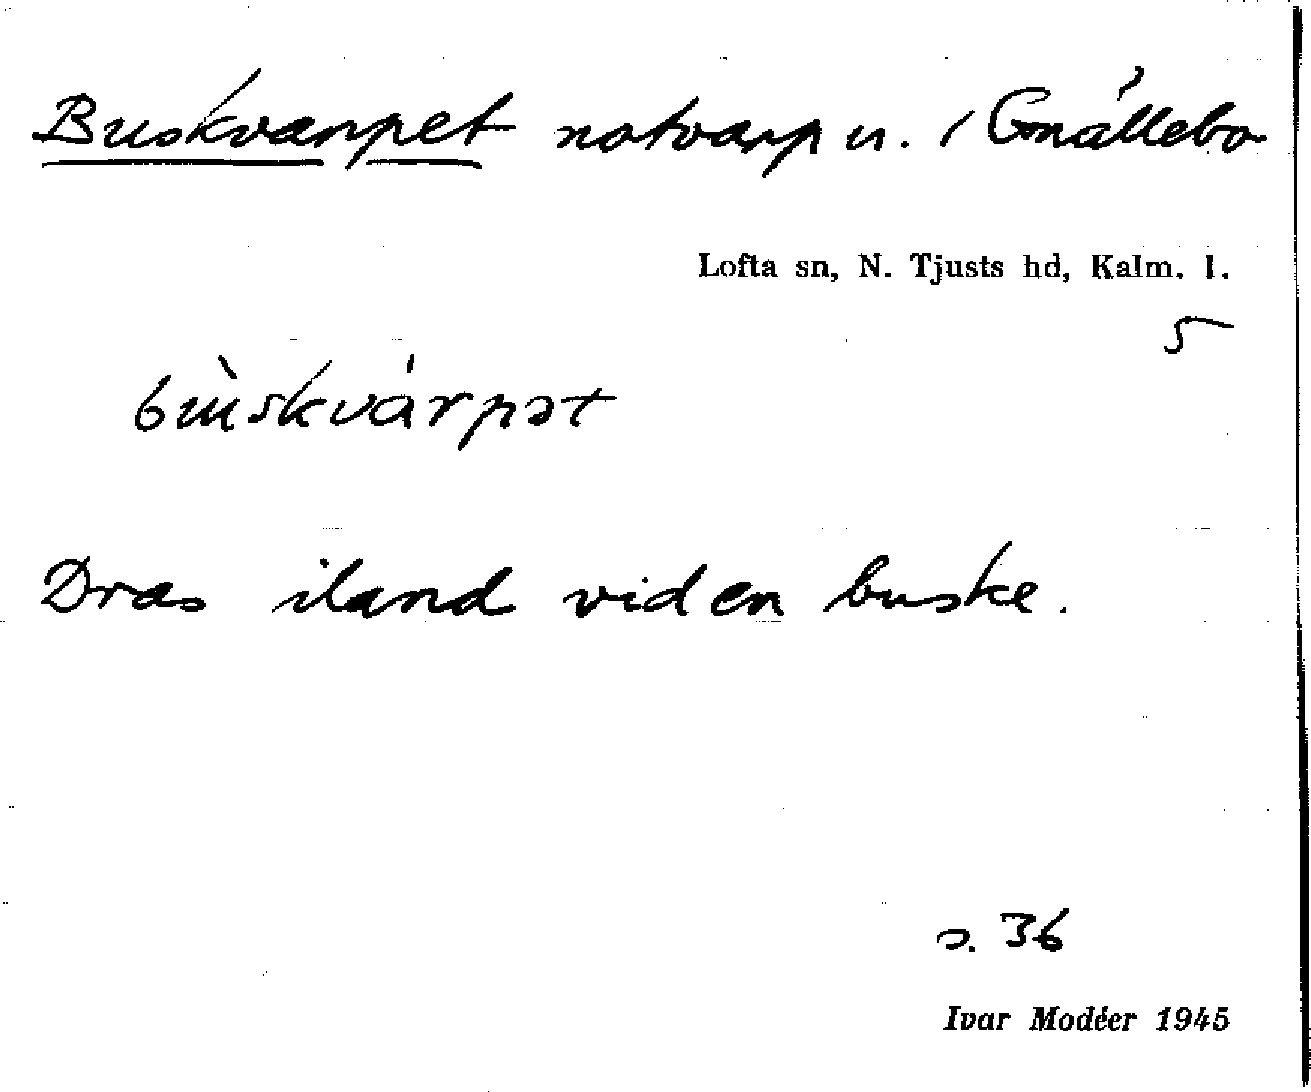 Buskvarpet notvarp u. / Gmållebo
Lofta sn, N. Tjusts hd, Kalm. l.
5
bùskvárpət
Dras iland vid en buske.
s. 36
Ivar Modéer 1945